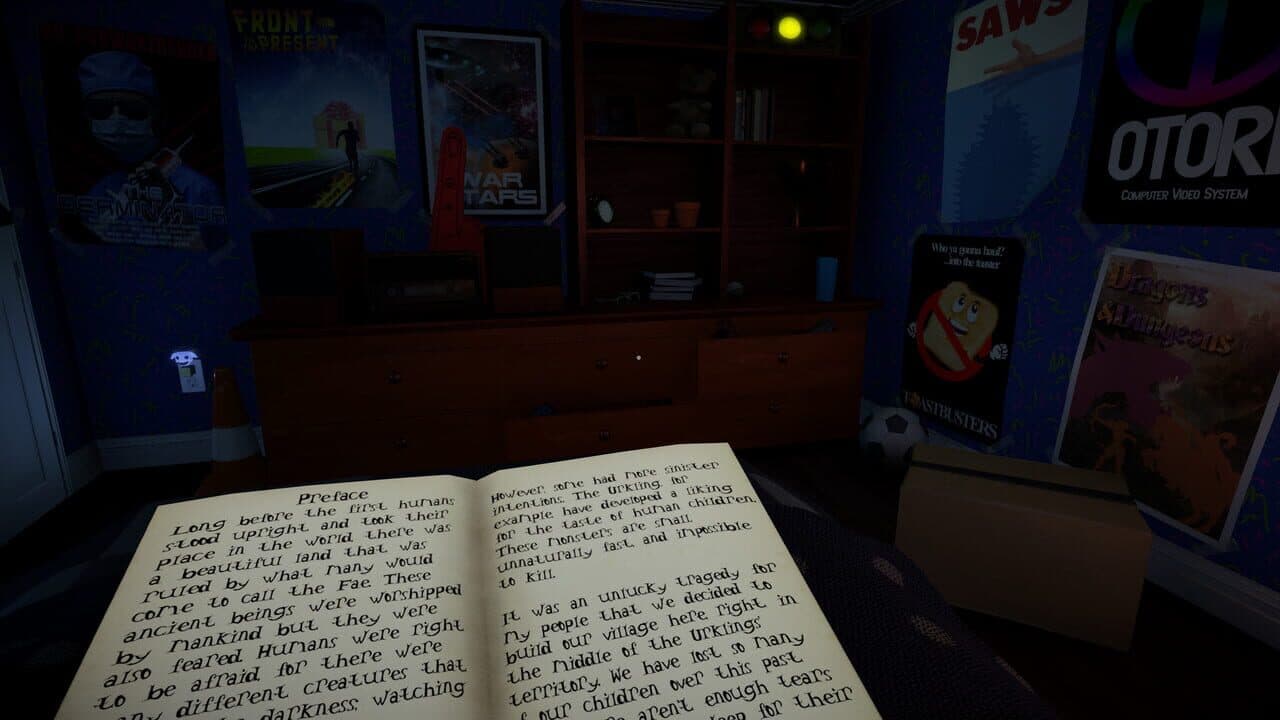 FRONT
TO PRESENT
THE
WAR
TARS
SAWS
OTORI
COMPUTER VIDEO SYSTEM
Who ya gonna haul?
...into the toaster
TOASTBUSTERS
Dragons
&Dungeons
Preface
Long before the first humans
stood upright and took their
place in the world there was
a beautiful land that was
ruled by what many would
come to call the Fae. These
ancient beings were worshipped
by mankind but they were
also feared. Humans were right
to be afraid for there were
different creatures that
darkness, watching
However, some had more sinister
intentions. The Urkling, for
example have developed a liking
for the taste of human children.
These monsters are small,
unnaturally fast, and impossible
to kill.
It was an unlucky tragedy for
my people that we decided to
build our village here right in
the middle of the Urklings'
territory. We have lost so many
of our children over this past
aren't enough tears
for their